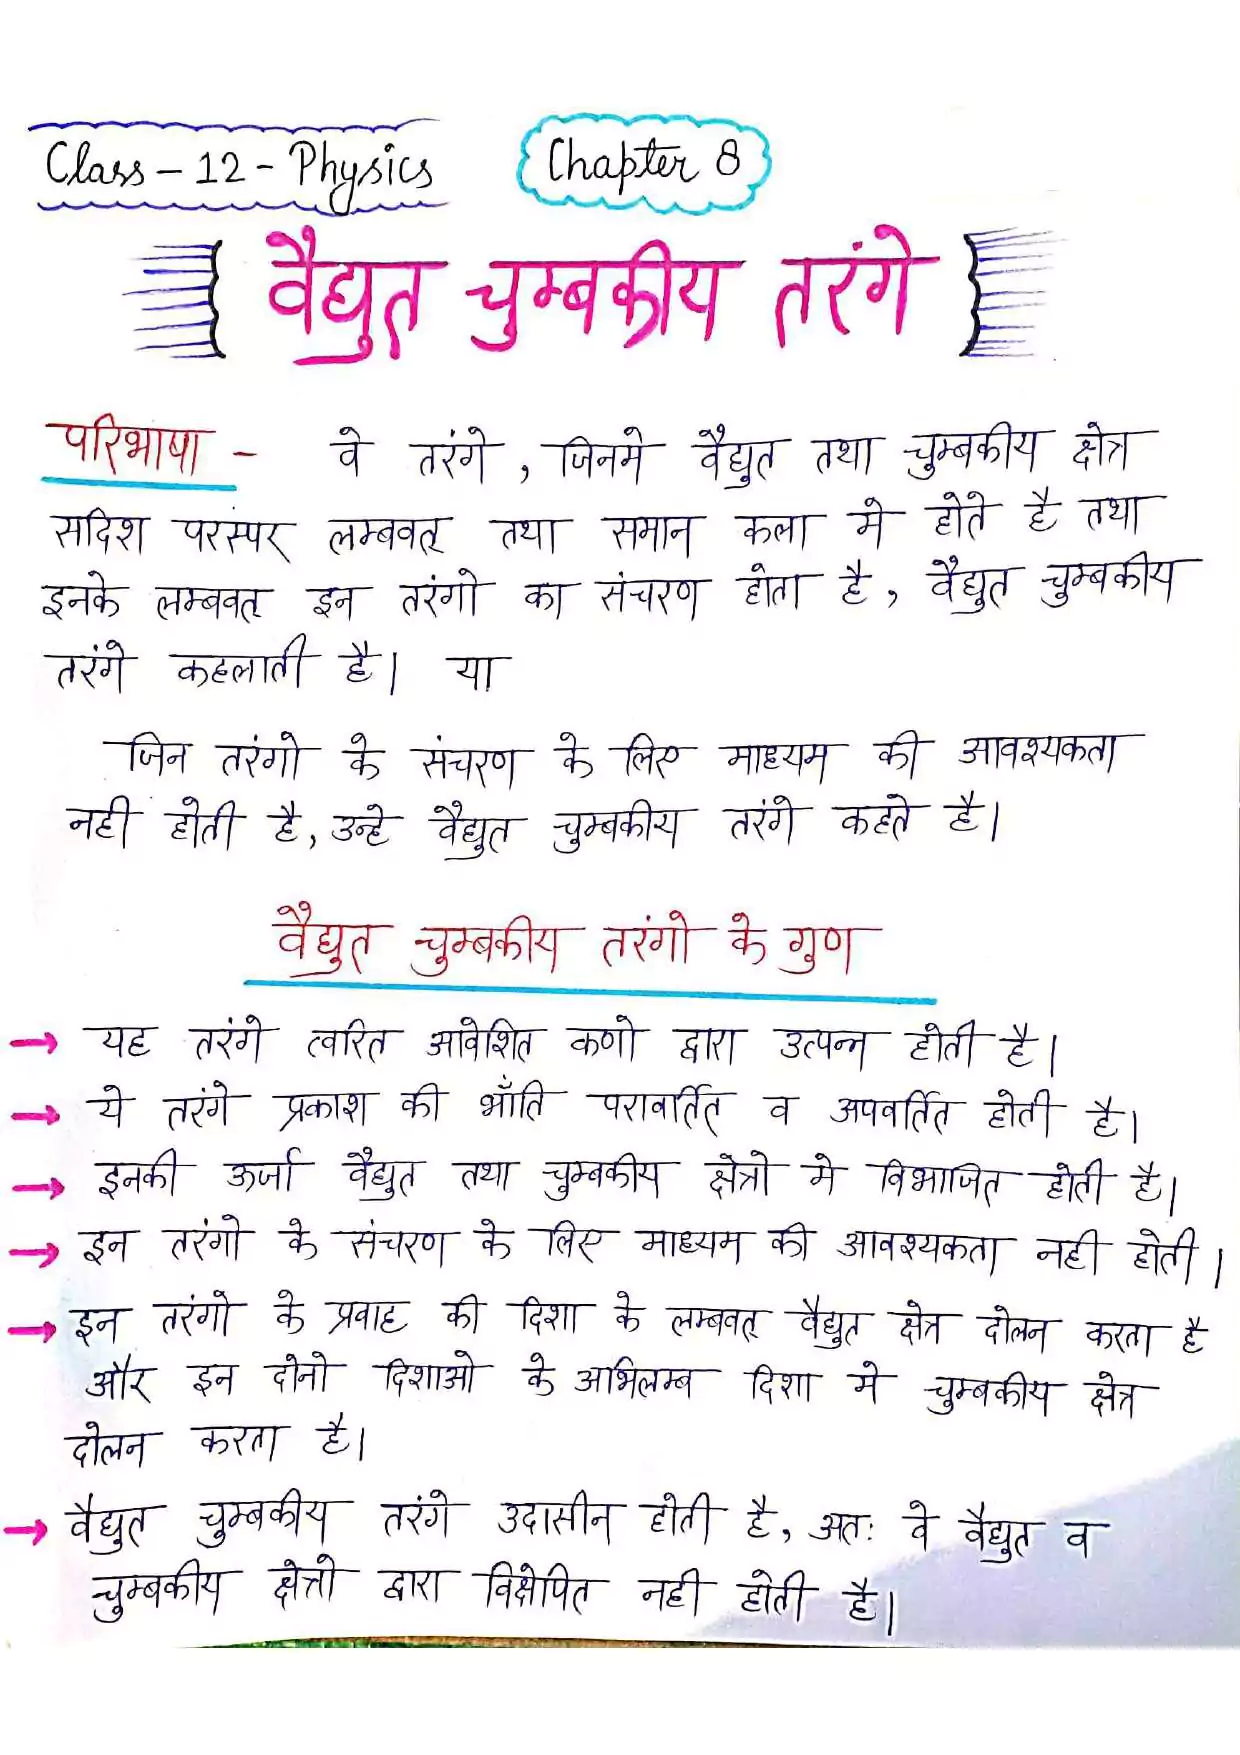 Class - 12 - Physics
Chapter 8
वैद्युत चुम्बकीय तरंगे
परिभाषा - वे तरंगे, जिनमे वैद्युत तथा चुम्बकीय क्षेत्र
सदिश परस्पर लम्बवत् तथा समान कला मे होते है तथा
इनके लम्बवत् इन तरंगो का संचरण होता है, वैद्युत चुम्बकीय
तरंगे कहलाती है। या
जिन तरंगो के संचरण के लिए माध्यम की आवश्यकता
नही होती है, उन्हे वैद्युत चुम्बकीय तरंगे कहते है।
वैद्युत चुम्बकीय तरंगो के गुण
→ यह तरंगे त्वरित आवेशित कणो द्वारा उत्पन्न होती है।
→ ये तरंगे प्रकाश की भाँति परावर्तित व अपवर्तित होती है।
→ इनकी ऊर्जा वैद्युत तथा चुम्बकीय क्षेत्रो मे विभाजित होती है।
→ इन तरंगो के संचरण के लिए माध्यम की आवश्यकता नही होती।
→ इन तरंगो के प्रवाह की दिशा के लम्बवत् वैद्युत क्षेत्र दोलन करता है
और इन दोनो दिशाओ के अभिलम्ब दिशा मे चुम्बकीय क्षेत्र
दोलन करता है।
→ वैद्युत चुम्बकीय तरंगे उदासीन होती है, अतः वे वैद्युत व
चुम्बकीय क्षेत्रो द्वारा विक्षेपित नही होती है।